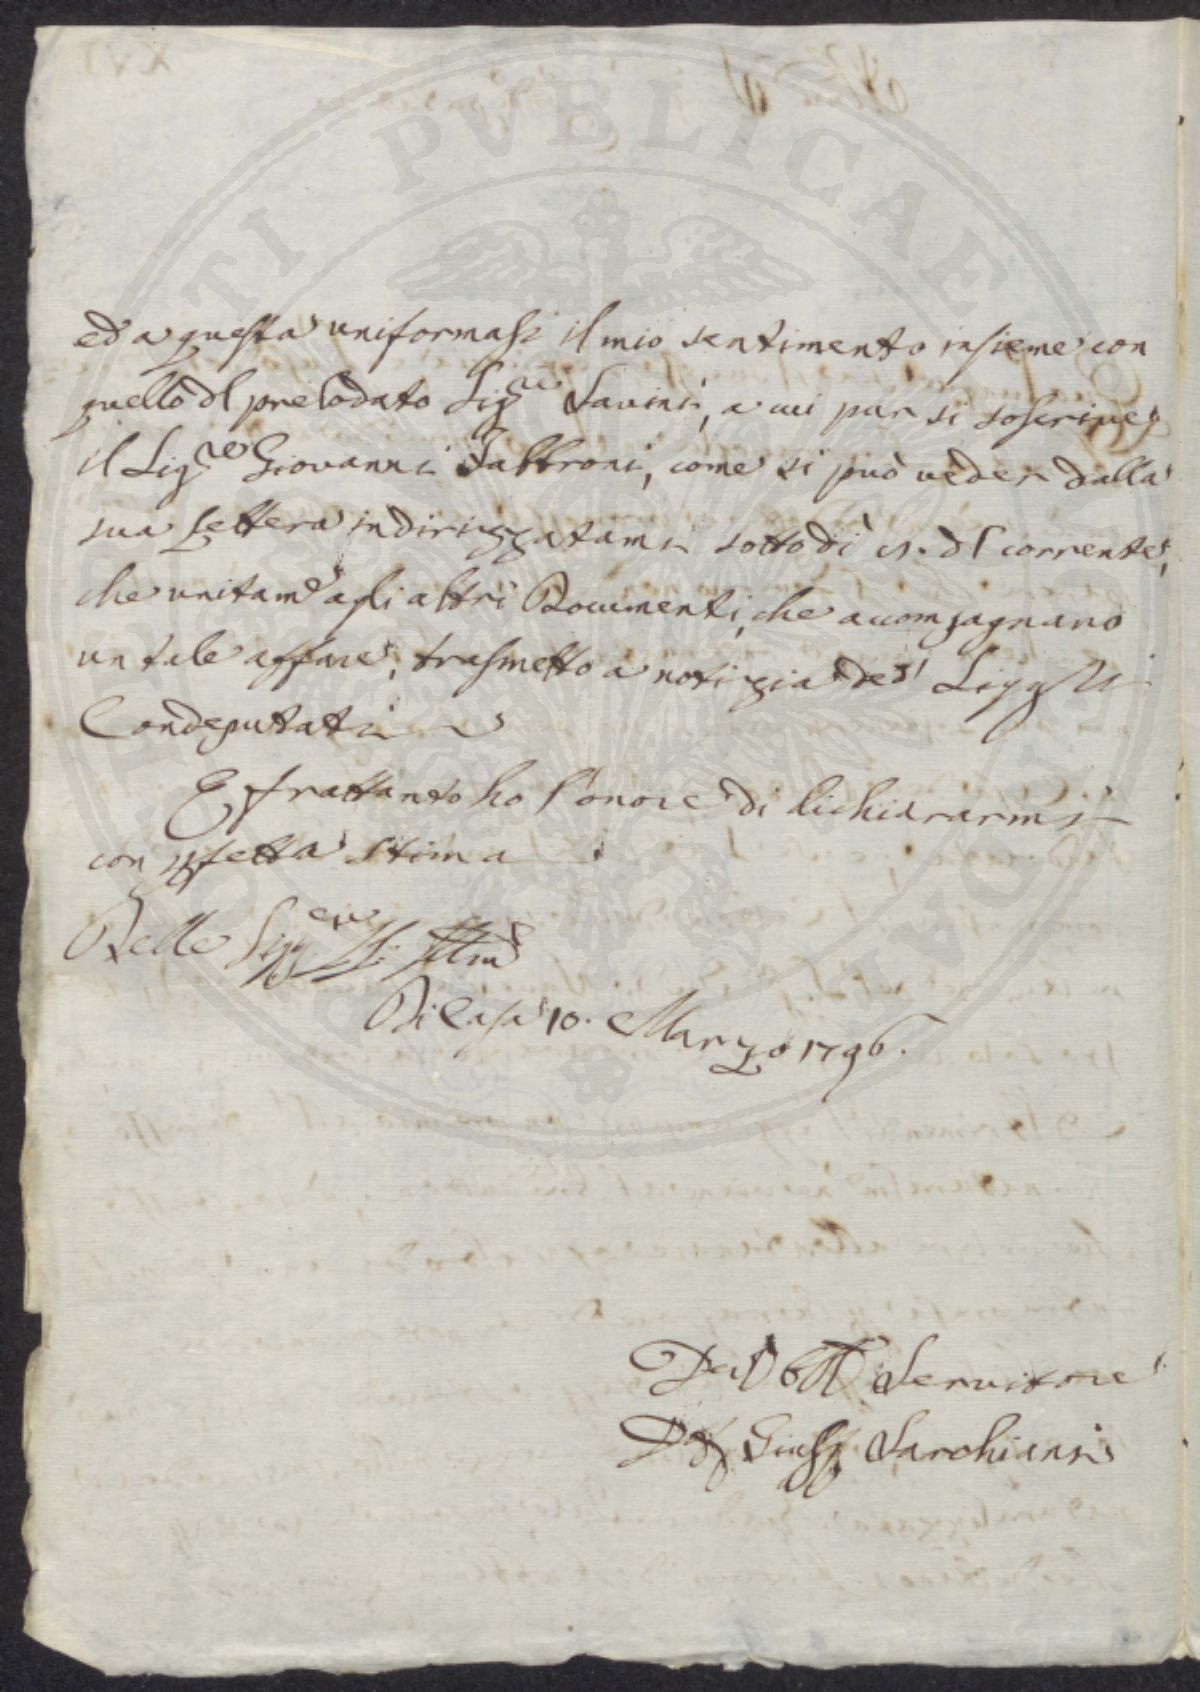 ed a questa uniformasi il mio sentimento insieme con
quello dl prelodato Sig.re Lavini, a cui pur si soscrive
il Sig.re Giovanni Fabbroni, come si può veder dalla
sua Lettera indirizzatami sotto dì dl corrente,
che unitam.e agli altri Documenti, che accompagnano
un tale affare, trasmetto a notizia de' Sigg.ri
Condeputati
E frattanto ho l'onore di dichiararmi
con pfetta stima
Delle Sigg.rie Illme
Di Casa 10. Marzo 1796.
Servitore
Giusp. Sarchiani
PVBLICAE